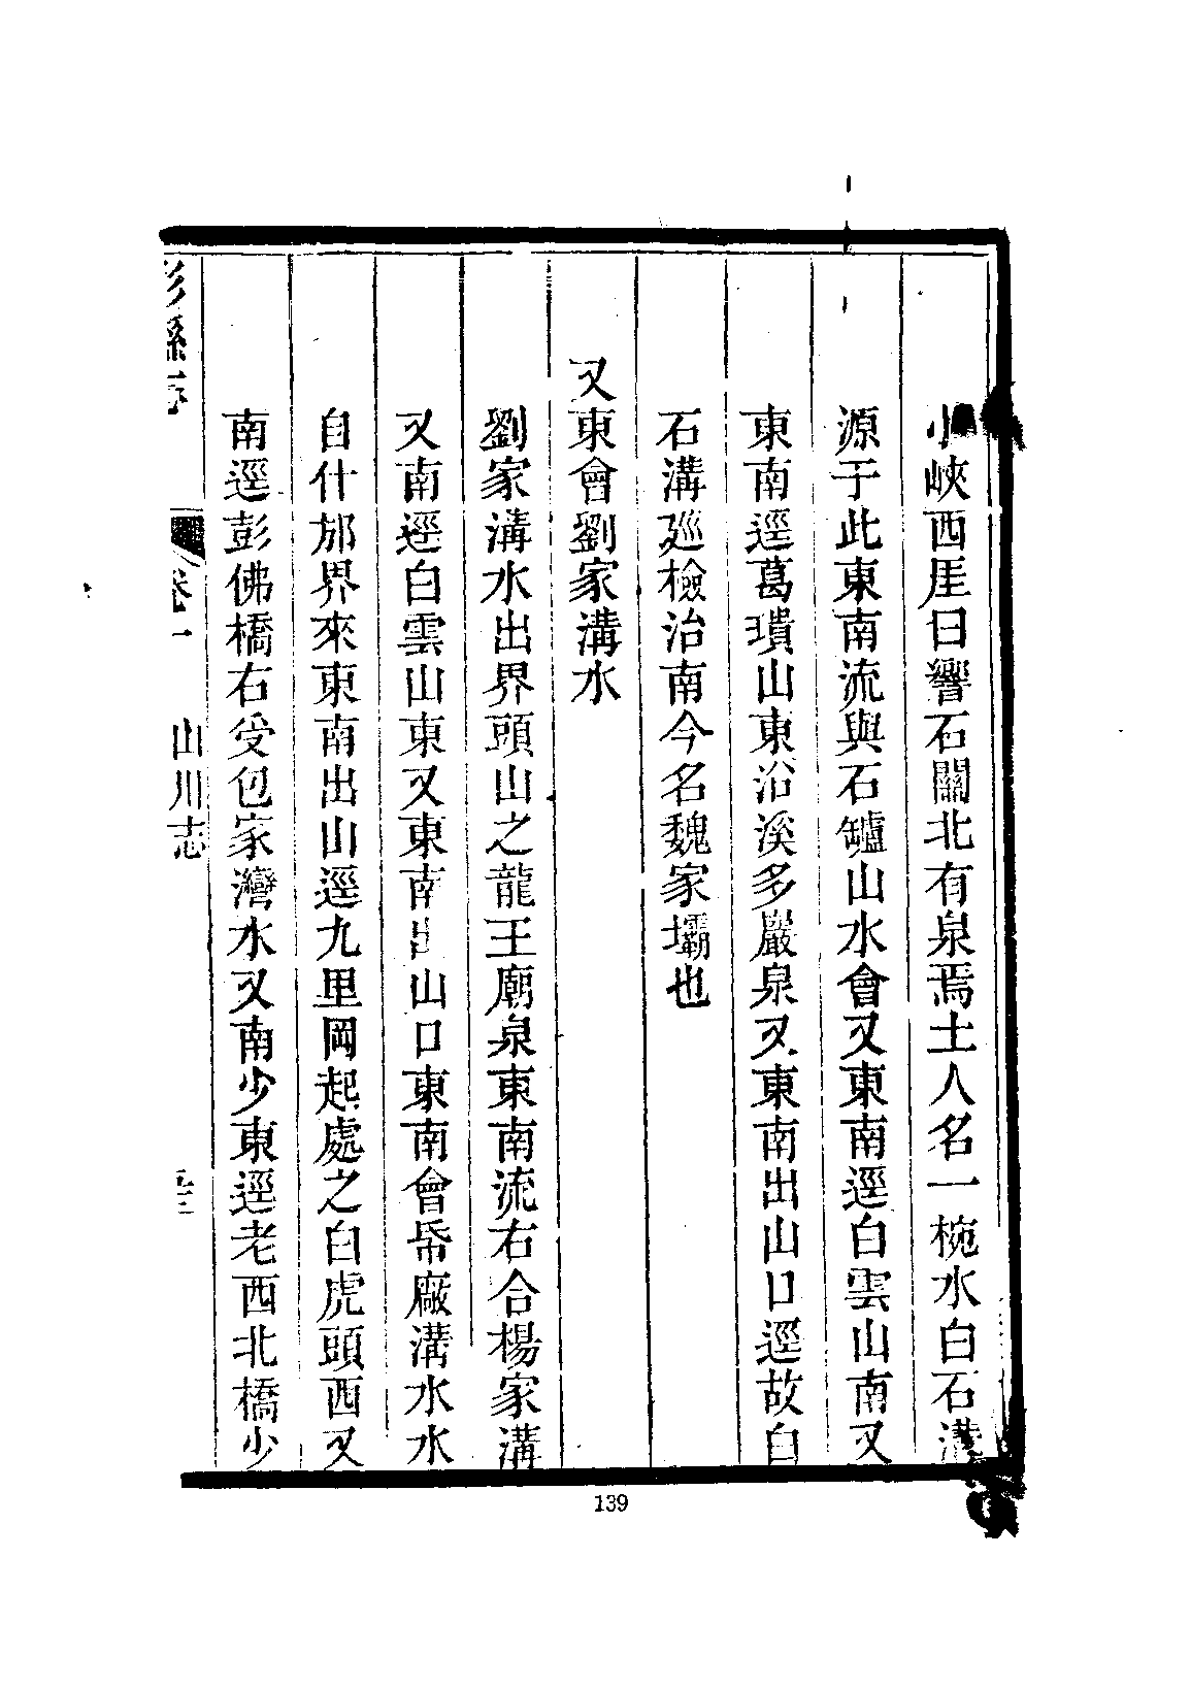 小峽西厓曰響石關北有泉焉土人名一椀水白石溝
源于此東南流與石罏山水會又東南逕白雲山南又
東南逕葛璝山東沿溪多巖泉又東南出山口逕故白
石溝廵檢治南今名魏家壩也
又東會劉家溝水
劉家溝水出界頭山之龍王廟泉東南流右合楊家溝
又南逕白雲山東又東南出山口東南會帋廠溝水水
自什邡界來東南出山逕九里岡起處之白虎頭西又
南逕彭佛橋右受包家灣水又南少東逕老西北橋少
彭縣志
卷一
山川志
139